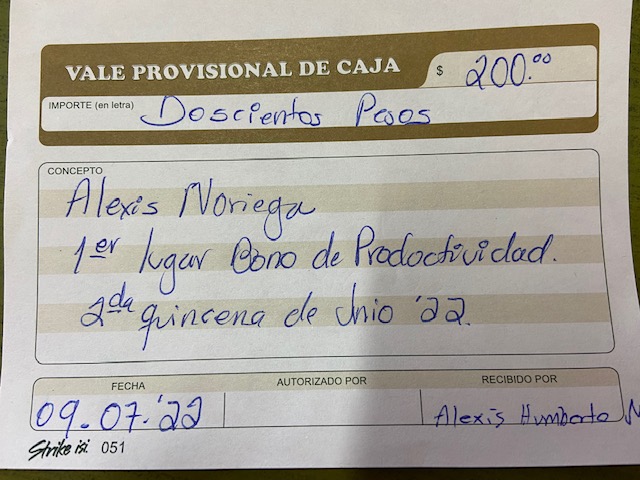 VALE PROVISIONAL DE CAJA
$ 200.00
IMPORTE (en letra) Doscientos Pesos
CONCEPTO
Alexis Noriega
1er lugar Bono de Productividad.
2da quincena de Junio '22.
FECHA AUTORIZADO POR RECIBIDO POR
09.07.'22 Alexis Humberto N
Strike 051